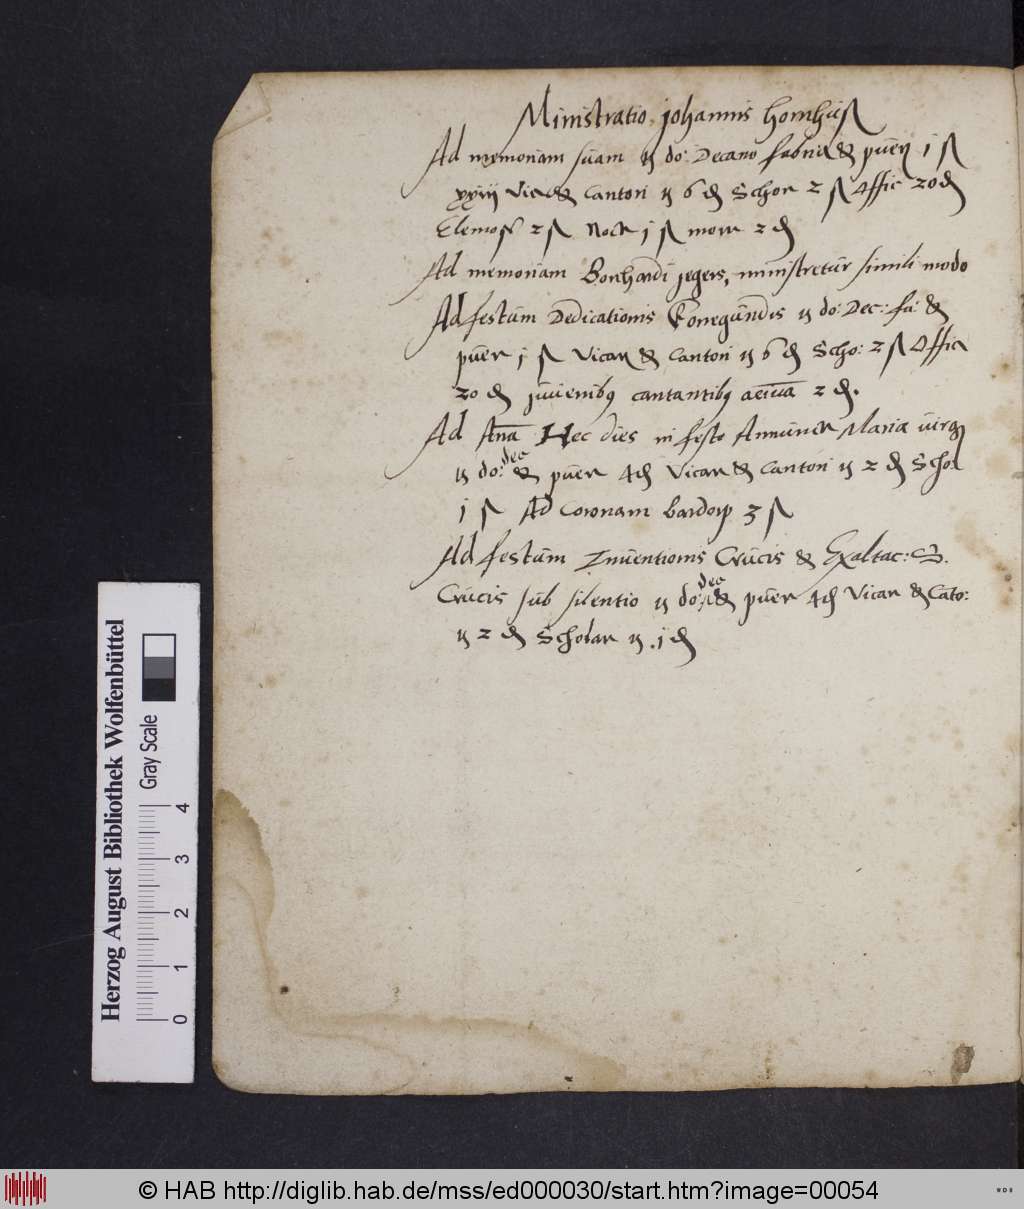 Ministratio johannis hornhus
Ad memoriam suam do: Decano fabrice & puer j ß
xxiiij Vica & Cantori 6 ₰ Schor 2 ß Offic 20 ₰
Elemos 2 ß Noct j ß morr 2 ₰
Ad memoriam Bonhardi jegers, ministretur simili modo
Ad festum Dedicationis Konegundis do: Dec: fa: &
puer j ß Vicar & Cantori 6 ₰ Scho: 2 ß Offic
20 ₰ juvenibus cantantibus 2 ₰.
Ad Ana Hec dies in festo Annunc Marie virg
do: dec & puer 4 ₰ Vicar & Cantori 2 ₰ Schol
j ß Ad Coronam bardorp 3 ß
Ad festum Inuentionis Crucis & Exaltac: S.
Crucis sub silentio do: dec & puer 4 ₰ Vicar & Cato:
2 ₰ Scholar . j ₰
Herzog August Bibliothek Wolfenbüttel
Gray Scale
0 1 2 3 4
© HAB http://diglib.hab.de/mss/ed000030/start.htm?image=00054